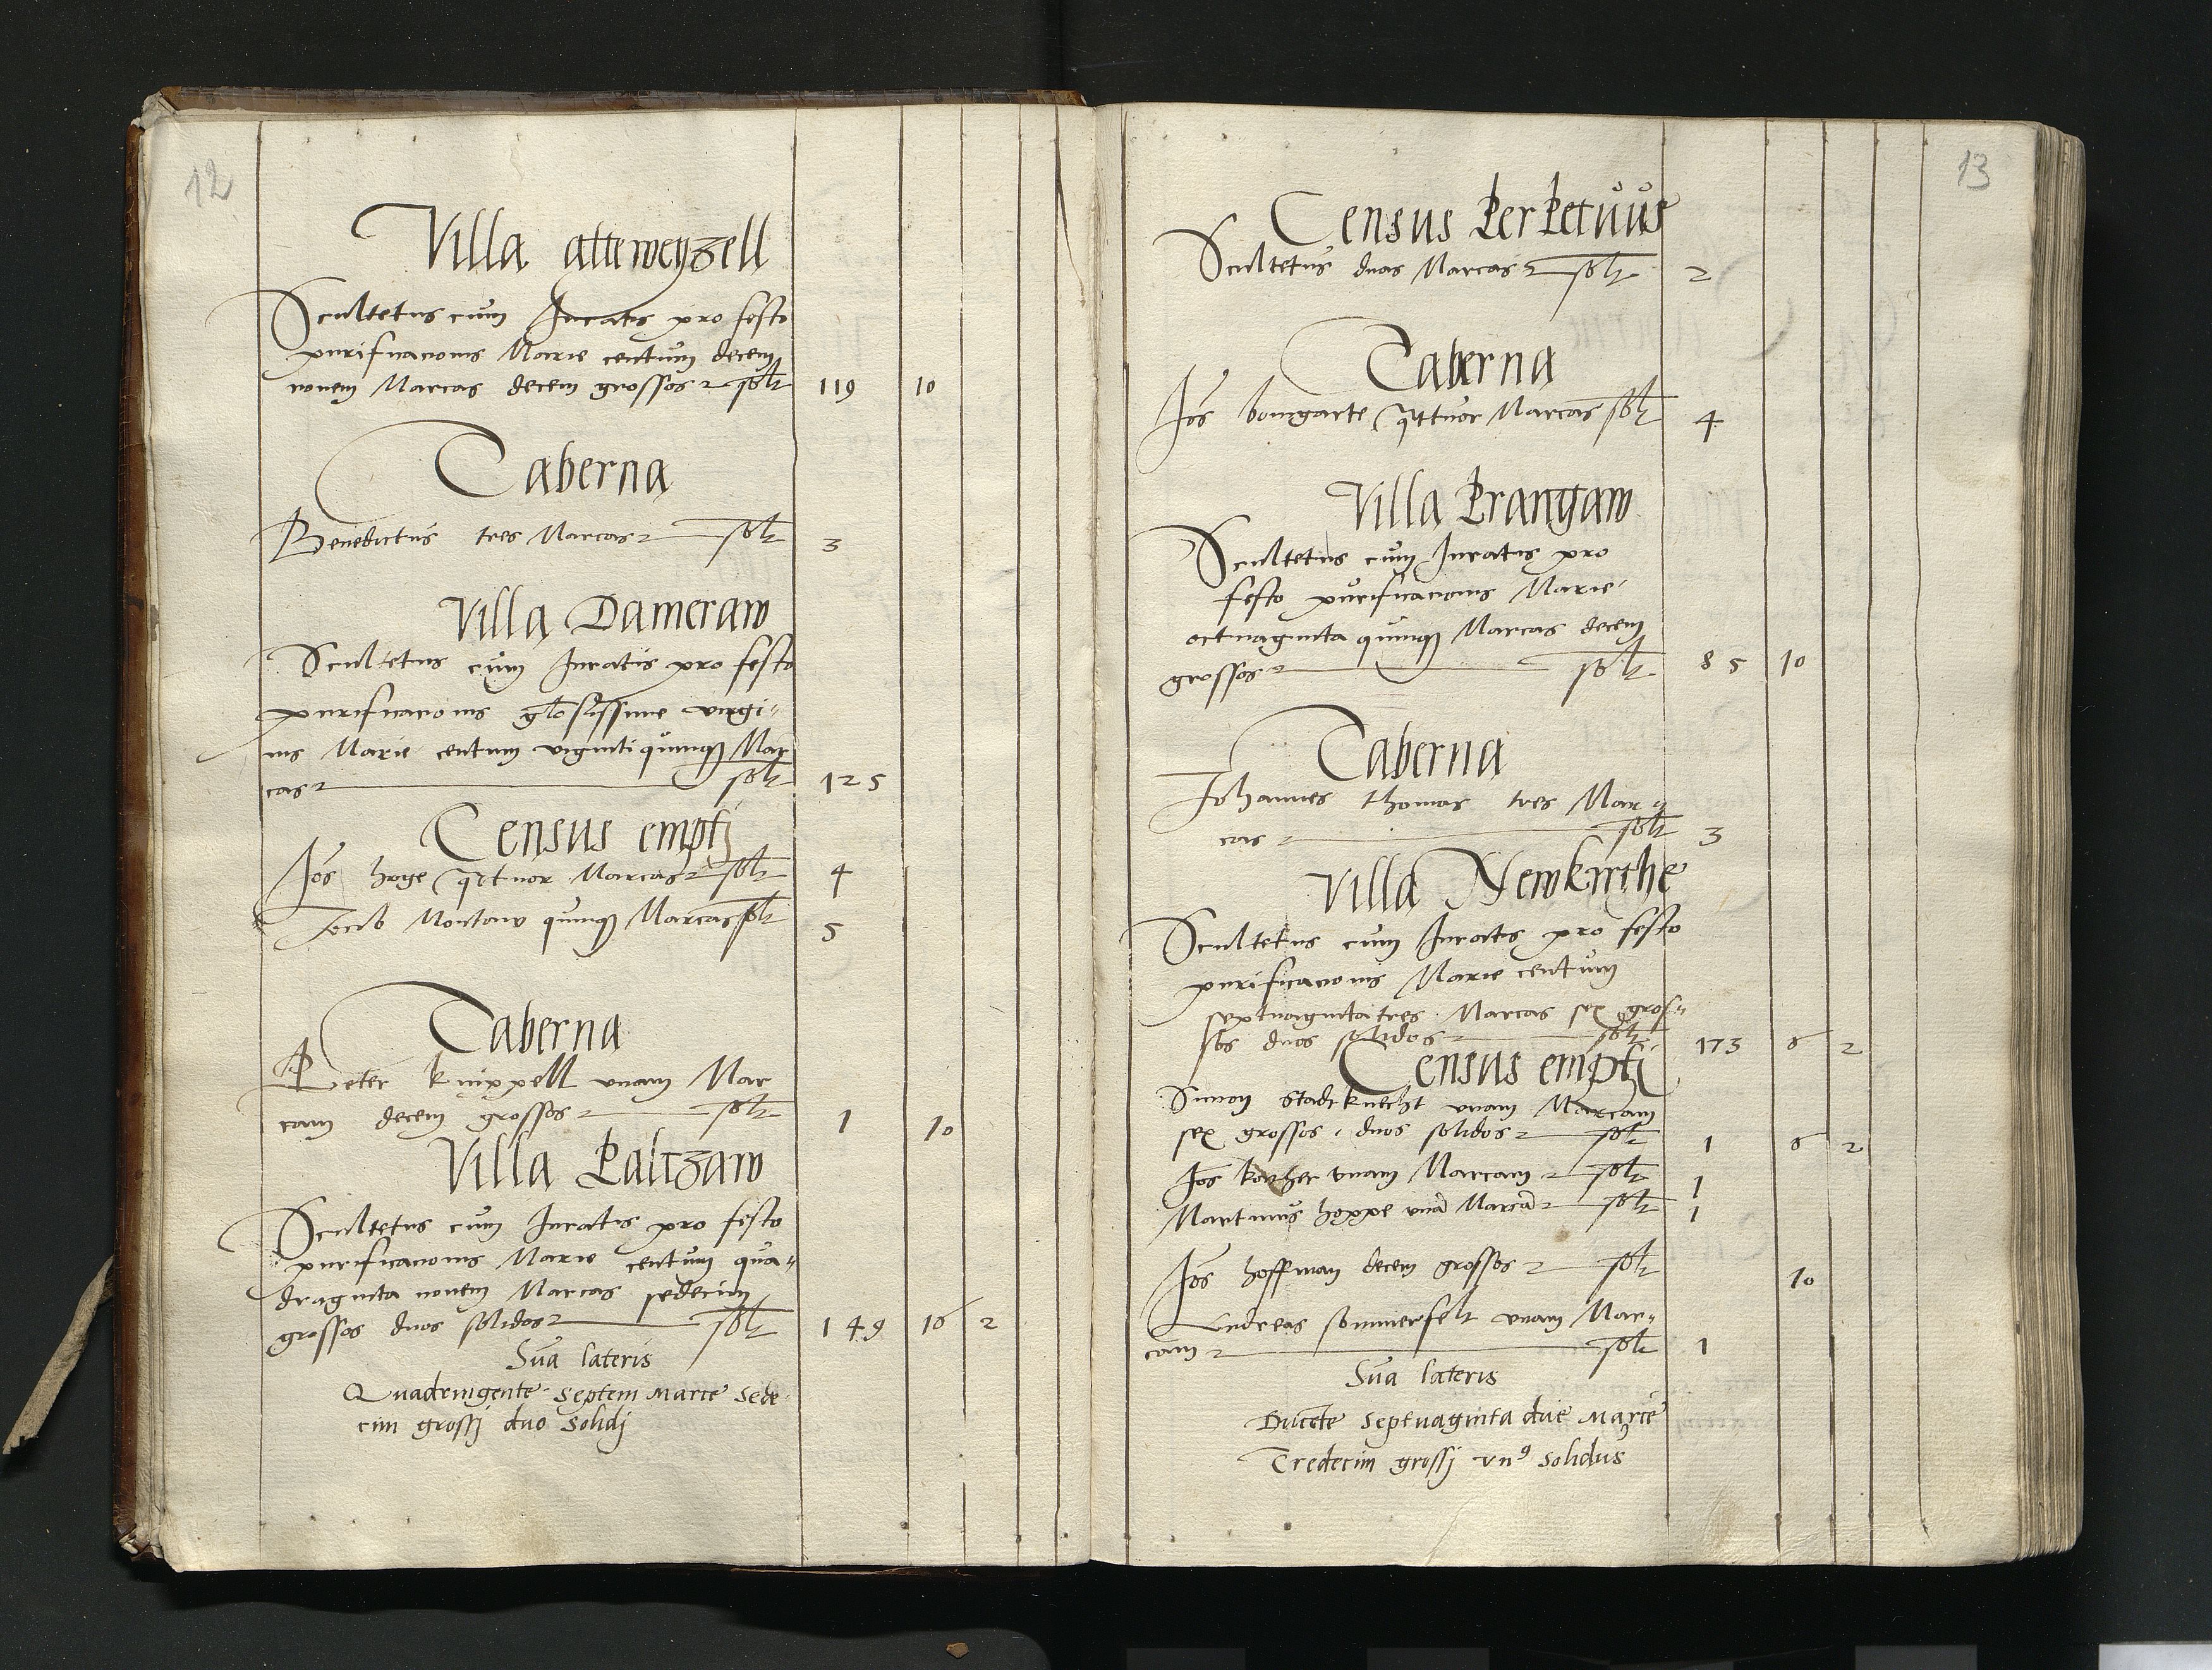 12
Villa alteweyzell
Scultetus cum Iuratis pro festo
purificacionis Marie centum decem
novem Marcas decem grossos solt 119 10
Taberna
Benedictus tres Marcas solt 3
Villa Dameraw
Scultetus cum Iuratis pro festo
purificacionis glosissime virgi-
nis Marie centum viginti quinq Mar
cas solt 125
Census empti
Jos hoge qttuor Marcas solt 4
Jocub Montaw quinq Marcas solt 5
Taberna
Peter knippell unam Mar
cam decem grossos solt 1 10
Villa Paltzaw
Scultetus cum Iuratis pro festo
purificacionis Marie centum qua-
draginta novem Marcas sedecim
grossos duos solidos solt 149 16 2
Sua lateris
Quadringente septem marce sede-
cim grossj duo solidj
13
Census Perpetuus
Scultetus duas Marcas solt 2
Taberna
Jos bomgarte qttuor Marcas solt 4
Villa Prangaw
Scultetus cum Iuratis pro
festo purificacionis Marie
octuaginta quinq Marcas decem
grossos solt 85 10
Taberna
Johannes thomas tres Mar-
cas solt 3
Villa Newkirche
Scultetus cum Iuratis pro festo
purificacionis Marie centum
septuaginta tres Marcas sex gros-
sos duos solidos solt 173 6 2
Census emptj
Simon Stadtknecht unam Marcam
sex grossos duos solidos solt 1 6 2
Jos unam Marcam solt 1
Martinus hoppe una Marca solt 1
Jos hoffman decem grossos solt 10
Andreas sommerfelt unam Mar-
cam solt 1
Sua lateris
Ducete septuaginta due marce
Tredecim grossj vn9 solidus